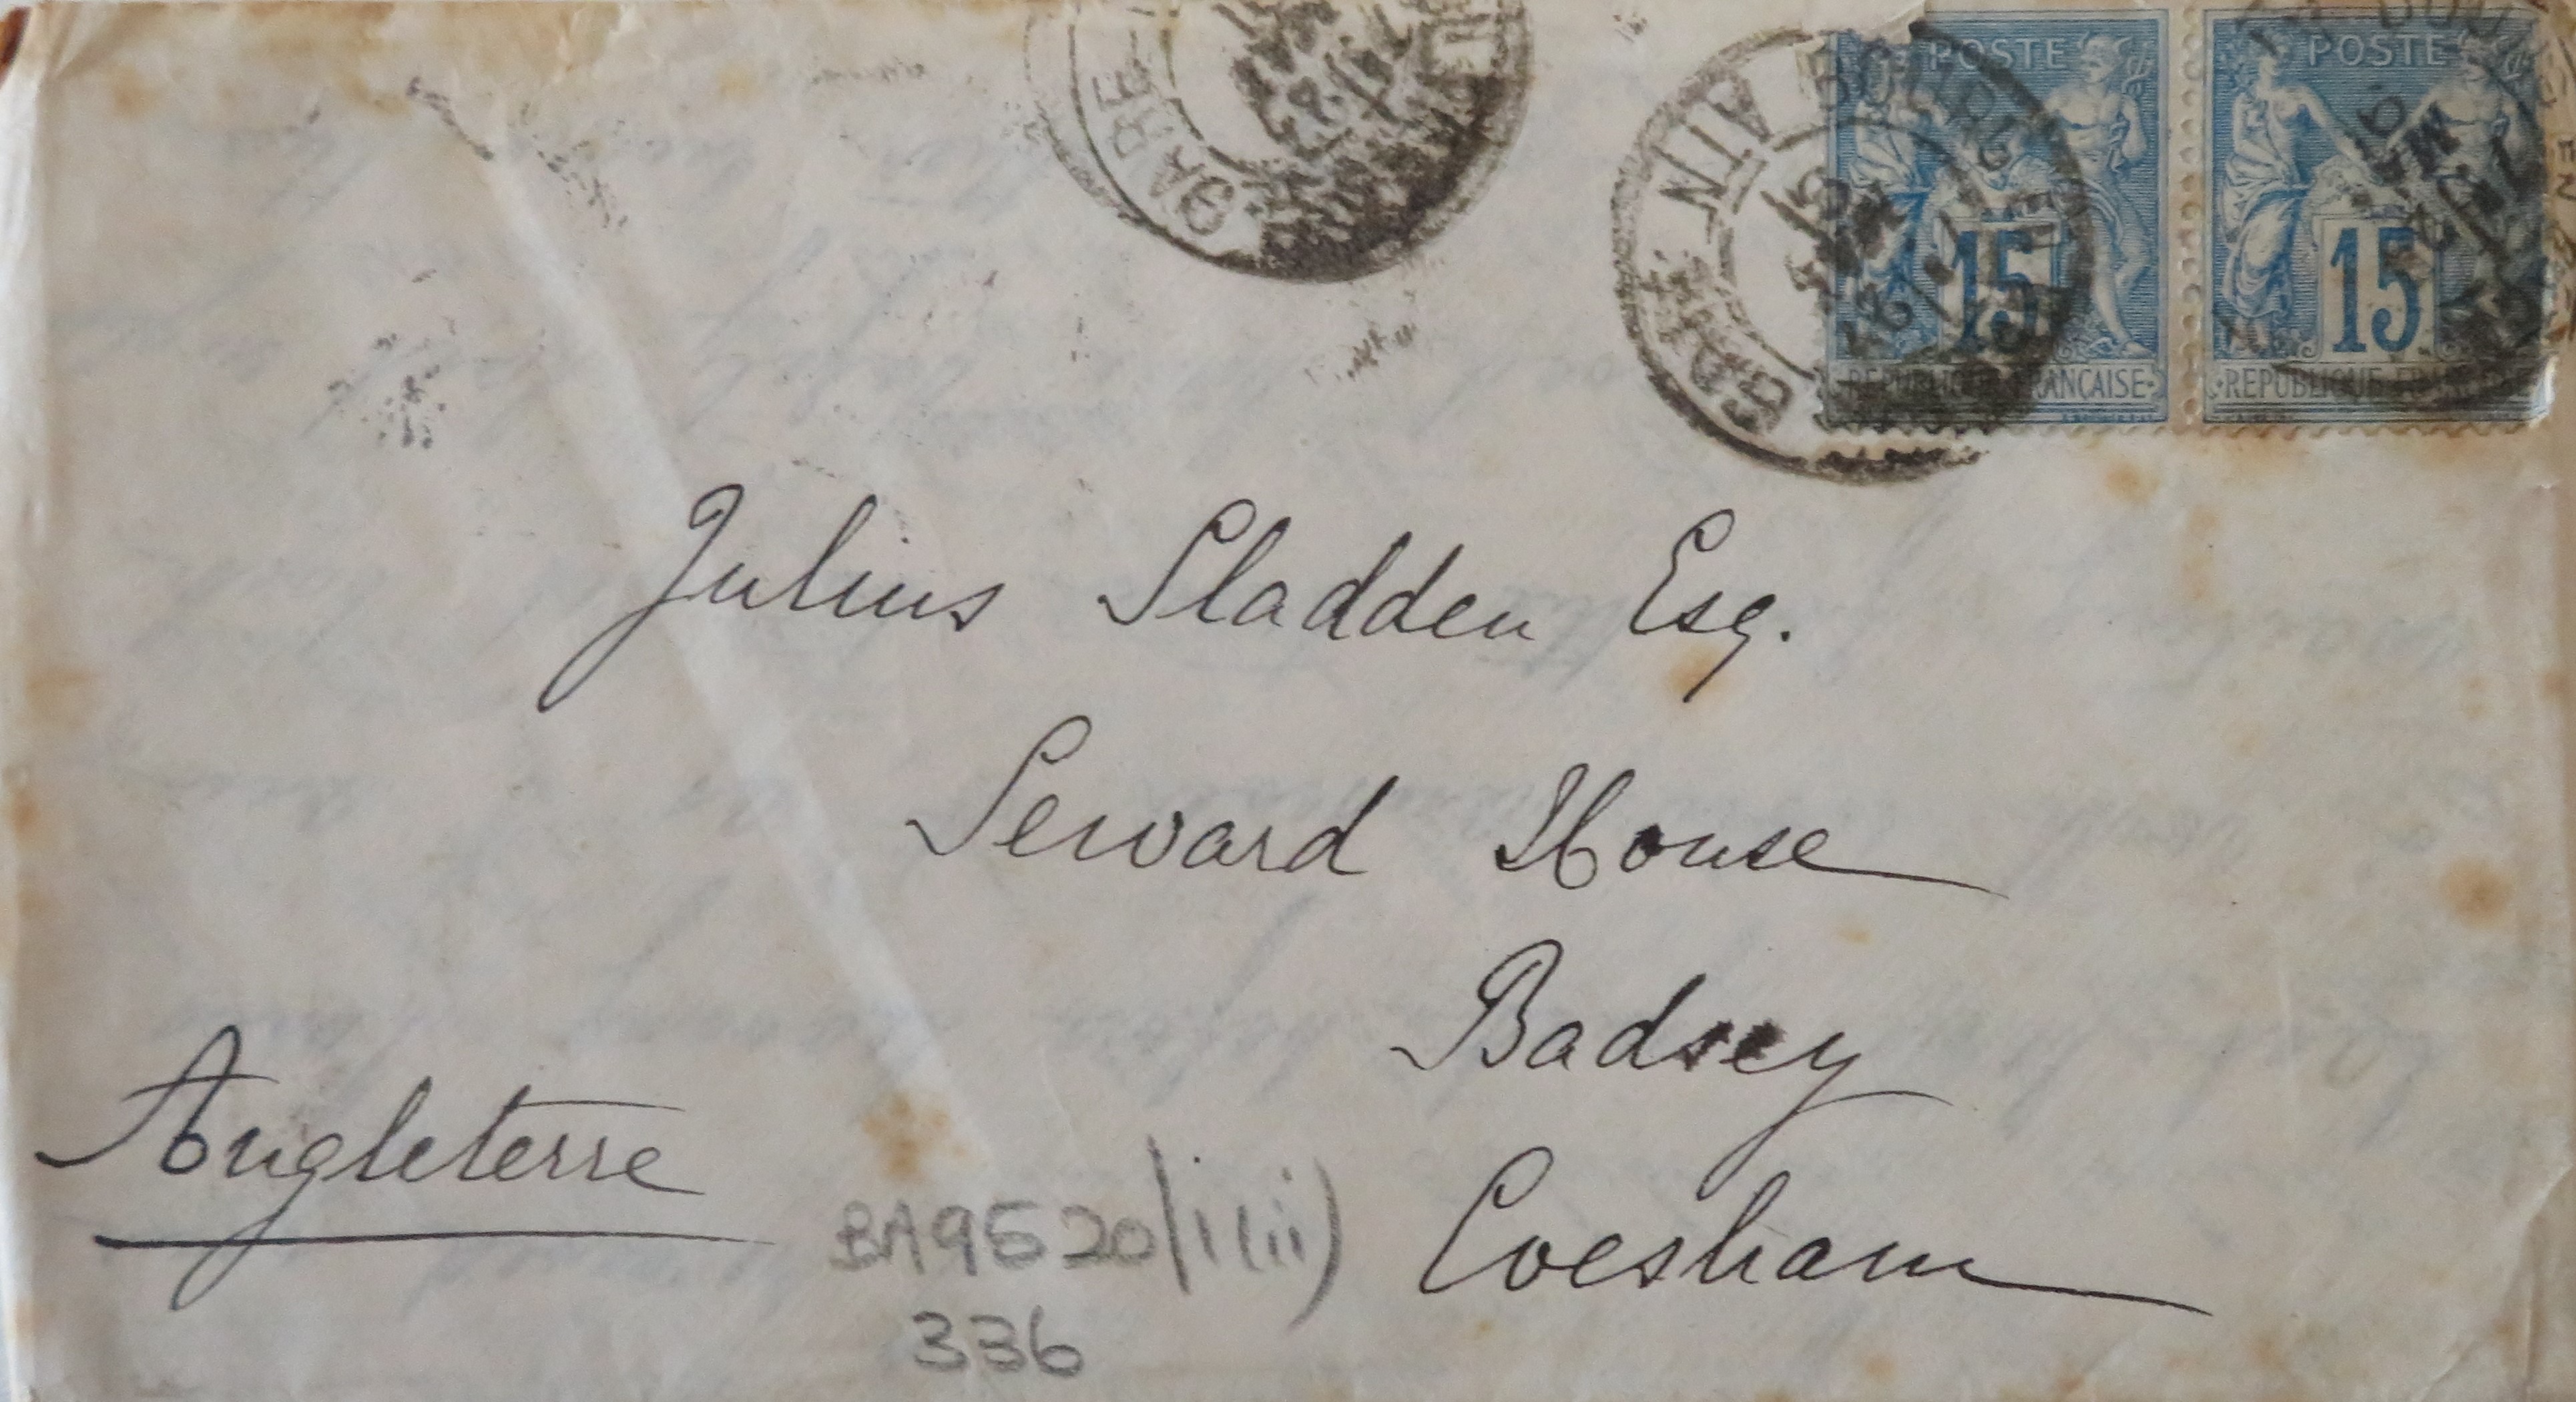 GARE
GARE
AIN
POSTE
15
REPUBLIQUE FRANÇAISE
POSTE
15
REPUBLIQUE FRANÇAISE
Julius Sladden Esq.
Seward House
Badsey
Evesham
Angleterre
BA9520/(i(ii)
336